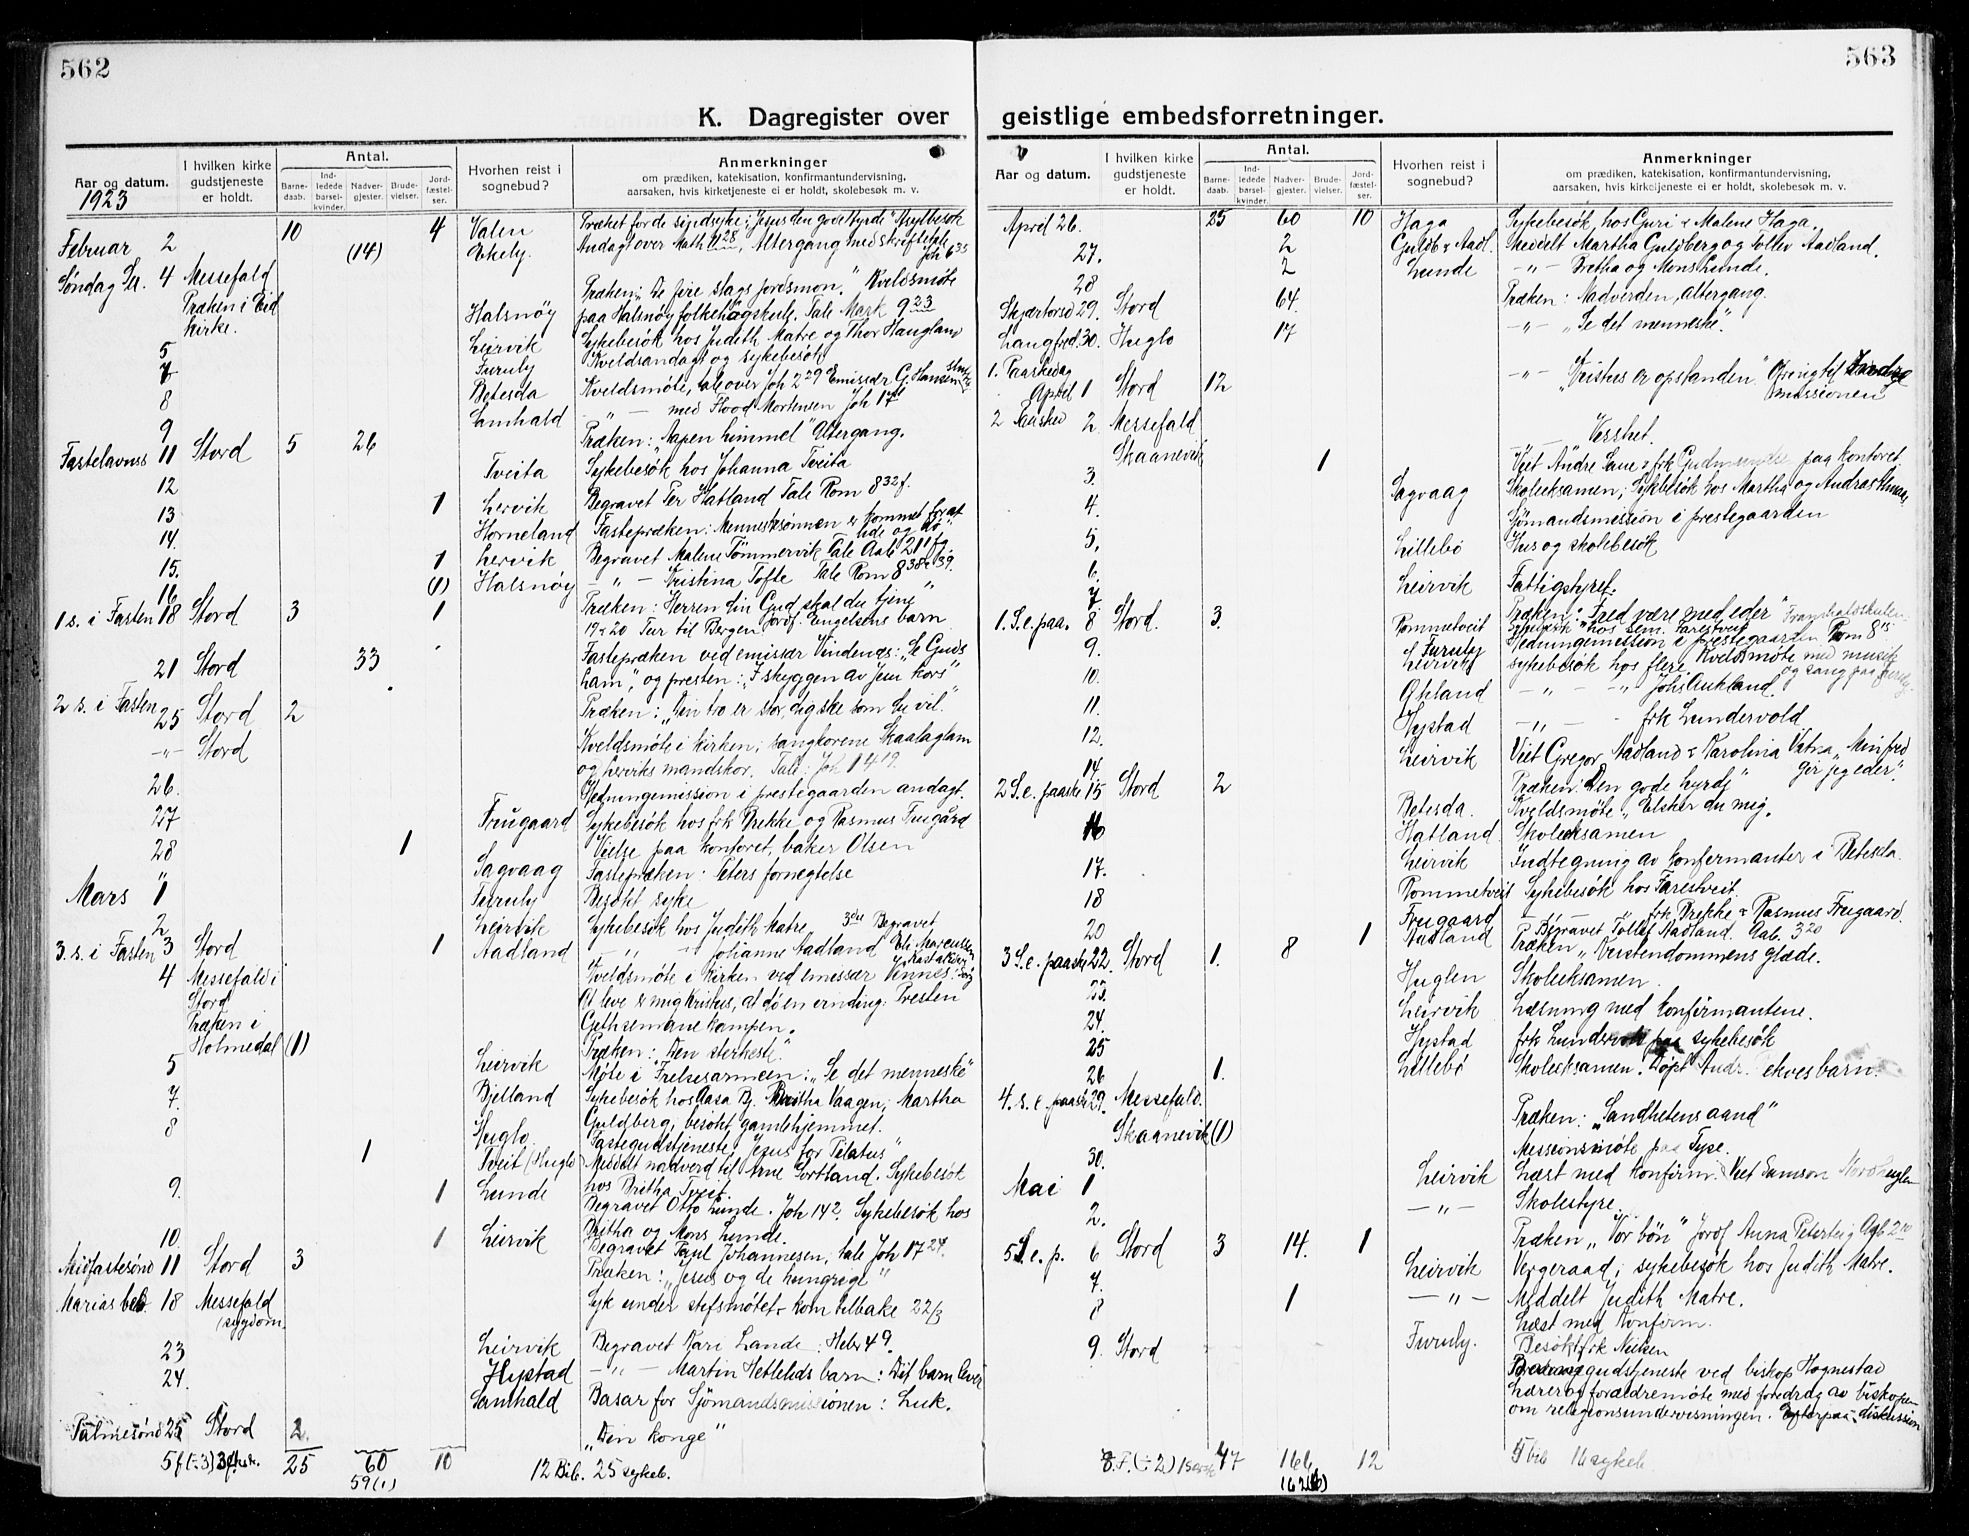 562
K. Dagregister over
Aar og datum.
1923
I hvilken kirke gudstjeneste er holdt.
Antal.
Barne-daab.
Ind-ledede barsel-kvinder.
Nadver-gjester.
Brude-vielser.
Jord-fæstel-ser.
Hvorhen reist i sognebud?
Anmerkninger
om prædiken, katekisation, konfirmantundervisning,
aarsaken, hvis kirketjeneste ei er holdt, skolebesøk m. v.
10 4 Valen Præket for de sindsyke: "Jesus den gode Hyrde"
Februar 2 (14) Ekely Andagt over Math 11 28, Altergang med skriftetale Joh 6 35
Søndag Sex. 4 Messefald
Præken i Eid Kirke.
Præken: "De fire slags jordsmon." Kveldsmöte
Halsnöy paa Halsnöy folkehögskule. Tale Mark 9 23
5 Leirvik Sykebesök hos Judith Matre og Thor Haugland
7 Furuly Kveldsandagt og sykebesök
8 Betesda Kveldsmöte, tale over Joh 2 29 Emissær G. Hansen
9 Samhald — " — med Flood Mortensen Joh 17
Fastelavnss 11 Stord 5 26 Præken: "Aapen himmel" Altergang.
12 Tveita Sykebesök hos Johanna Tveita
13. 1 Lervik Begravet Per Hatland Tale Rom 8 32 f.
14. Horneland Fastepræken: Menneskesönnen er kommet for at lide og dö"
15. 1 Lervik Begravet Malene Tömmervik Tale Aab 21 1 fg.
16 (1) Halsnöy — " — Kristina Tofte Tale Rom 8 38 & 39.
1 s. i Fasten 18 Stord 3 1 Præken: "Herren din Gud skal du tjene"
19 & 20 Tur til Bergen jordf. Engelsens barn
21 Stord 33 Fastepræken ved emissær Vindenes: "Se Guds
Lam", og presten: "I skyggen av Jesu kors"
2 s. i Fasten 25 Stord 2 Præken: "Din tro er stor, dig ske som du vil."
— " — Stord Kveldsmöte i kirken; sangkorene Skaalaglam
og Lerviks mandskor. Tale: Joh 14 19
26. Hedningemission i prestegaarden andagt.
27 Frugaard Sykebesök hos frk Brekke og Rasmus Frugård
28 1 Vielse paa kontoret, baker Olsen
Mars 1 Sagvaag Fastepræken. Peters fornegtelse
2 Furuly Besökt syke
Leirvik Sykebesök hos Judith Matre
3. s. i Fasten 3 Stord 1 Aadland — " — Johanne Aadland
4 Messefald i Stord
Præken i Holmedal (1)
Kveldsmöte i kirken ved emissær Vinnes:
At leve er mig Kristus, at dö en vinding: Presten
Gethsemane kampen.
Præken: "Den sterkeste".
5 Leirvik Möte i Frelsesarmeen: "Se det menneske"
7. Bjelland Sykebesök hos Aasa Bj. Britha Vaagen, Martha
Guldberg, besökt gamlehjemmet.
8 Huglo. Fastegudstjeneste, "Jesus for Pilatus"
1 Tveit (Huglo) Meddelt nadverd til Arne Sortland. Sykebesök
hos Britha Tveit.
9. 1 Lunde Begravet Otto Lunde. Joh 14 2. Sykebesök hos
Britha og Mons Lunde.
10. 1 Leirvik Begravet Paul Johannesen, tale Joh 17 24.
Midfastesönd 11 Stord 3 Præken: "Jesus og de hungrige"
Marias beb 18 Messefald (sygdom. Syk under stefsmötet & kom tilbake 22/3
23 Leirvik Begravet Kari Lande: Hebr 4 9.
24. Hystad — " — Martin Vetleleds barn: Dit barn lever
Samhald Basar for Sjömandsmissionen: Luk.
Palmesönd 25 Stord 2. "Din Konge"
25 60 10 12 Bib. 25 sykeb.
59(1)
563
geistlige embedsforretninger.
Aar og datum.
I hvilken kirke gudstjeneste er holdt.
Antal.
Barne-daab.
Ind-ledede barsel-kvinder.
Nadver-gjester.
Brude-vielser.
Jord-fæstel-ser.
Hvorhen reist i sognebud?
Anmerkninger
om prædiken, katekisation, konfirmantundervisning,
aarsaken, hvis kirketjeneste ei er holdt, skolebesøk m. v.
April 26. 25 60 10 Haga Sykebesök hos Guri & Malene Haga.
27. 2 Guldb & Aadl. Meddelt Martha Guldberg og Tollev Aadland.
28 2 Lunde — " — Bretha og Mons Lunde.
Skjærtorsd 29. Stord 64. Præken: Nadverden, altergang.
Langfred. 30. Huglo 17 — " — "Se det menneske".
1. Paaskedag
April 1 Stord 12 — " — "Kristus er opstanden" Ofring til Indre missionen
2 Paasked 2. Messefald
Skaanevik
1 Viet Andre Lane & frk paa kontoret
3. Sagvaag Skoleeksamen; Sykebesök hos Martha og Andras
4. Sjömandsmission i prestegaarden
5. Lillebö Hus og skolebesök
6. Leirvik Fattigstyret.
7
1. S.e. paa. 8 Stord. 3. Rommetveit Præken: "Fred være med eder"
9. Furuly Hedningemission i prestegaarden Rom 8 15
Leirvik Sykebesök hos flere. Kveldsmöte med musik og sang paa Furuly.
10. Økland — " — " Johs Aukland.
11. Hystad — " — frk Lundervold
12. Leirvik Viet Gregor Aadland & Karolina Vatna, "Min fred gir jeg eder".
14
2 S.e. paaske 15 Stord 2 Præken: Den gode hyrde"
Betesda. Kveldsmöte "Elsker du mig.
16 Hatland Skoleeksamen
17. Leirvik Indtegning av konfirmanter i Betesda.
18 Rommetveit Sykebesök hos Farestveit
20 Frugaard — frk Brekke & Rasmus Frugaard.
1 Aadland Begravet Tollef Aadland. Aab. 3 20
3 S.e. paaske 22. Stord 1. 8 Præken "Kristendommens glæde.
23. Huglen Skoleeksamen.
24. Leirvik Læsning med konfirmantene.
25 Hystad frk Lundervold paa sykebesök
26 1. Lillebö Skoleeksamen. Döpt Andr. Ekves barn.
4. s. e. paaske 29. Messefald.
Skaanevik (1)
Præken: "Sandhetens aand"
30. Messionsmöte paa Tyse.
Mai 1 Leirvik Læst med konfirm. Viet Samson
2. — " — Skolestyre.
5 S.e. p. 6 Stord 3 14. 1 Præken "Vor bön" Jordf Anna Petersteig Aab 2 10
7. Leirvik Vergeraad; sykebesök hos Judith Matre.
8 1 — " — Meddelt Judith Matre.
Læst med Konfirm.
9. Stord Furuly. Besökt frk Nielsen
gudstjeneste ved biskop Hognestad
Lærer og forældremöte med foredrag av biskopen
om religionsundervisningen. Efterpaa diskussion
8. F. (÷2) 47 166 12 5 bib 16 sykeb.